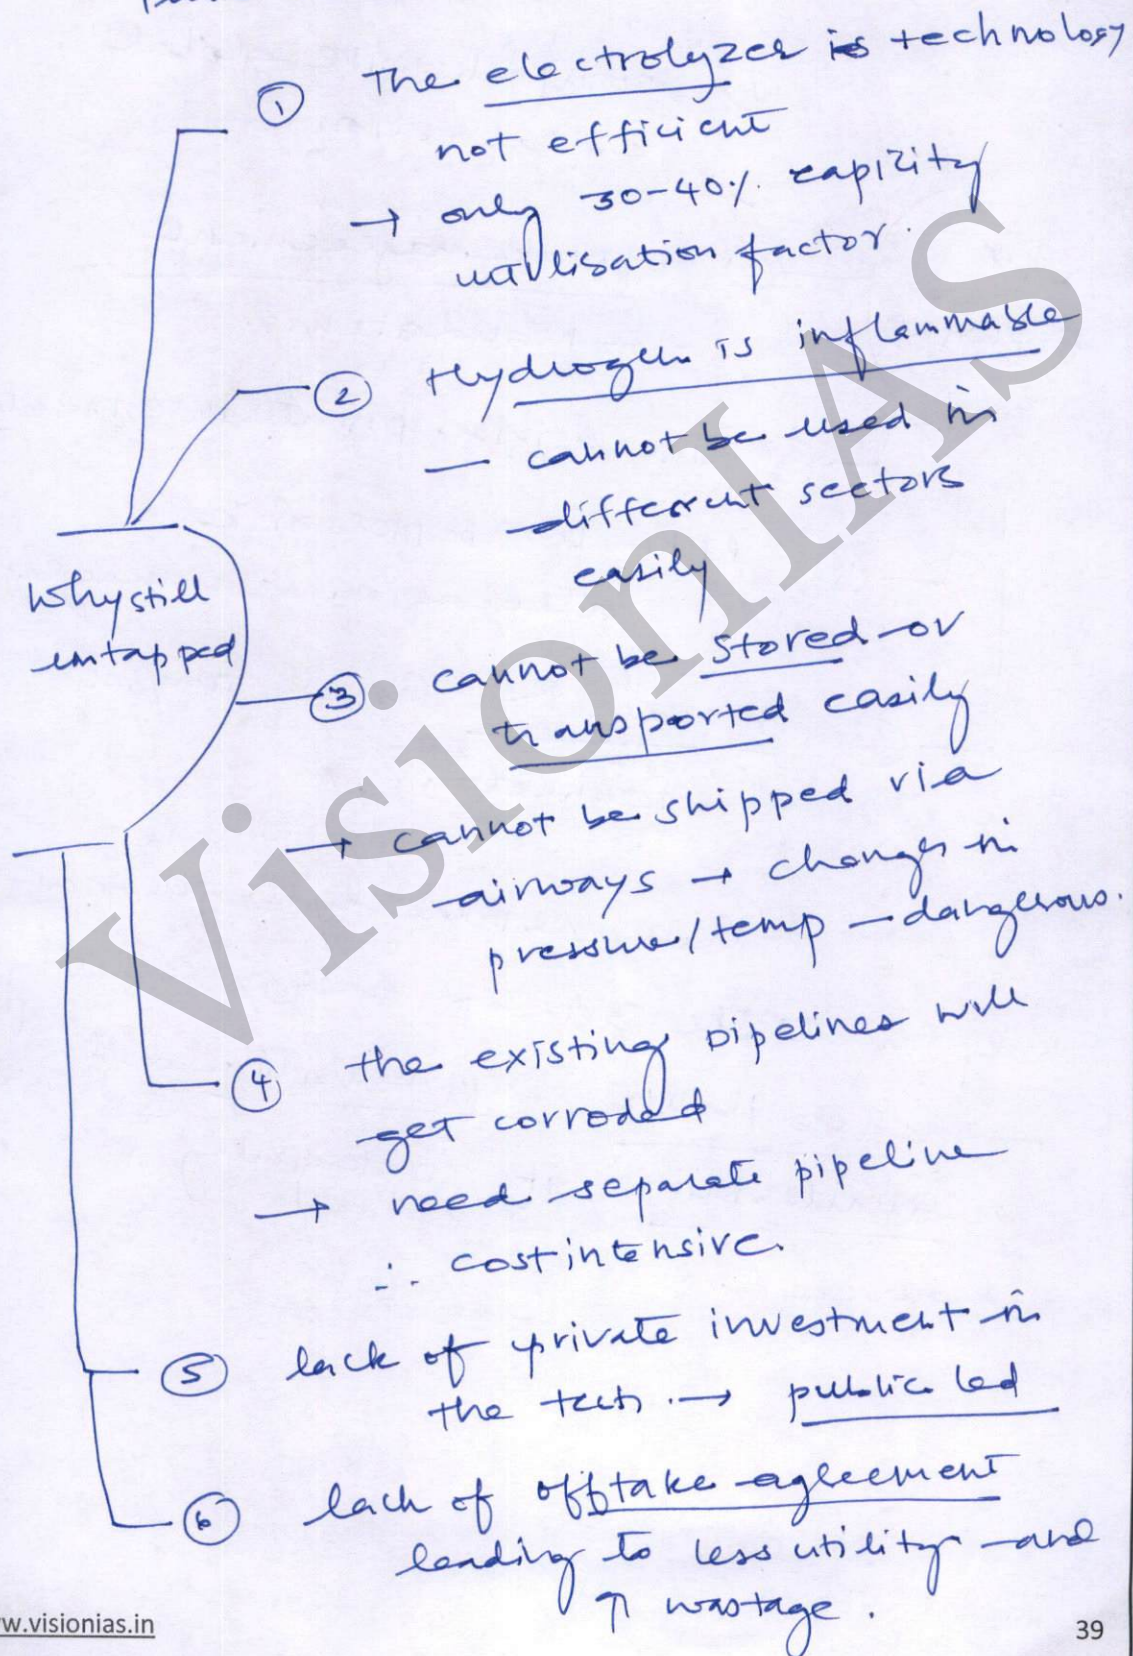 ①
The electrolyzer is technology
not efficient
→ only 30-40% capicity
utilisation factor.
② Hydrogen is inflammable
— cannot be used in
different sectors
easily
Why still
untapped
③ cannot be stored or
transported easily
→ cannot be shipped via
airways → changes in
pressure/temp — dangerous.
④ the existing pipelines will
get corroded
→ need separate pipeline
∴ cost intensive.
⑤ lack of private investment in
the tech. → public led
⑥ lack of offtake agreement
leading to less utility and
↑ wastage.
VisionIAS
w.visionias.in
39